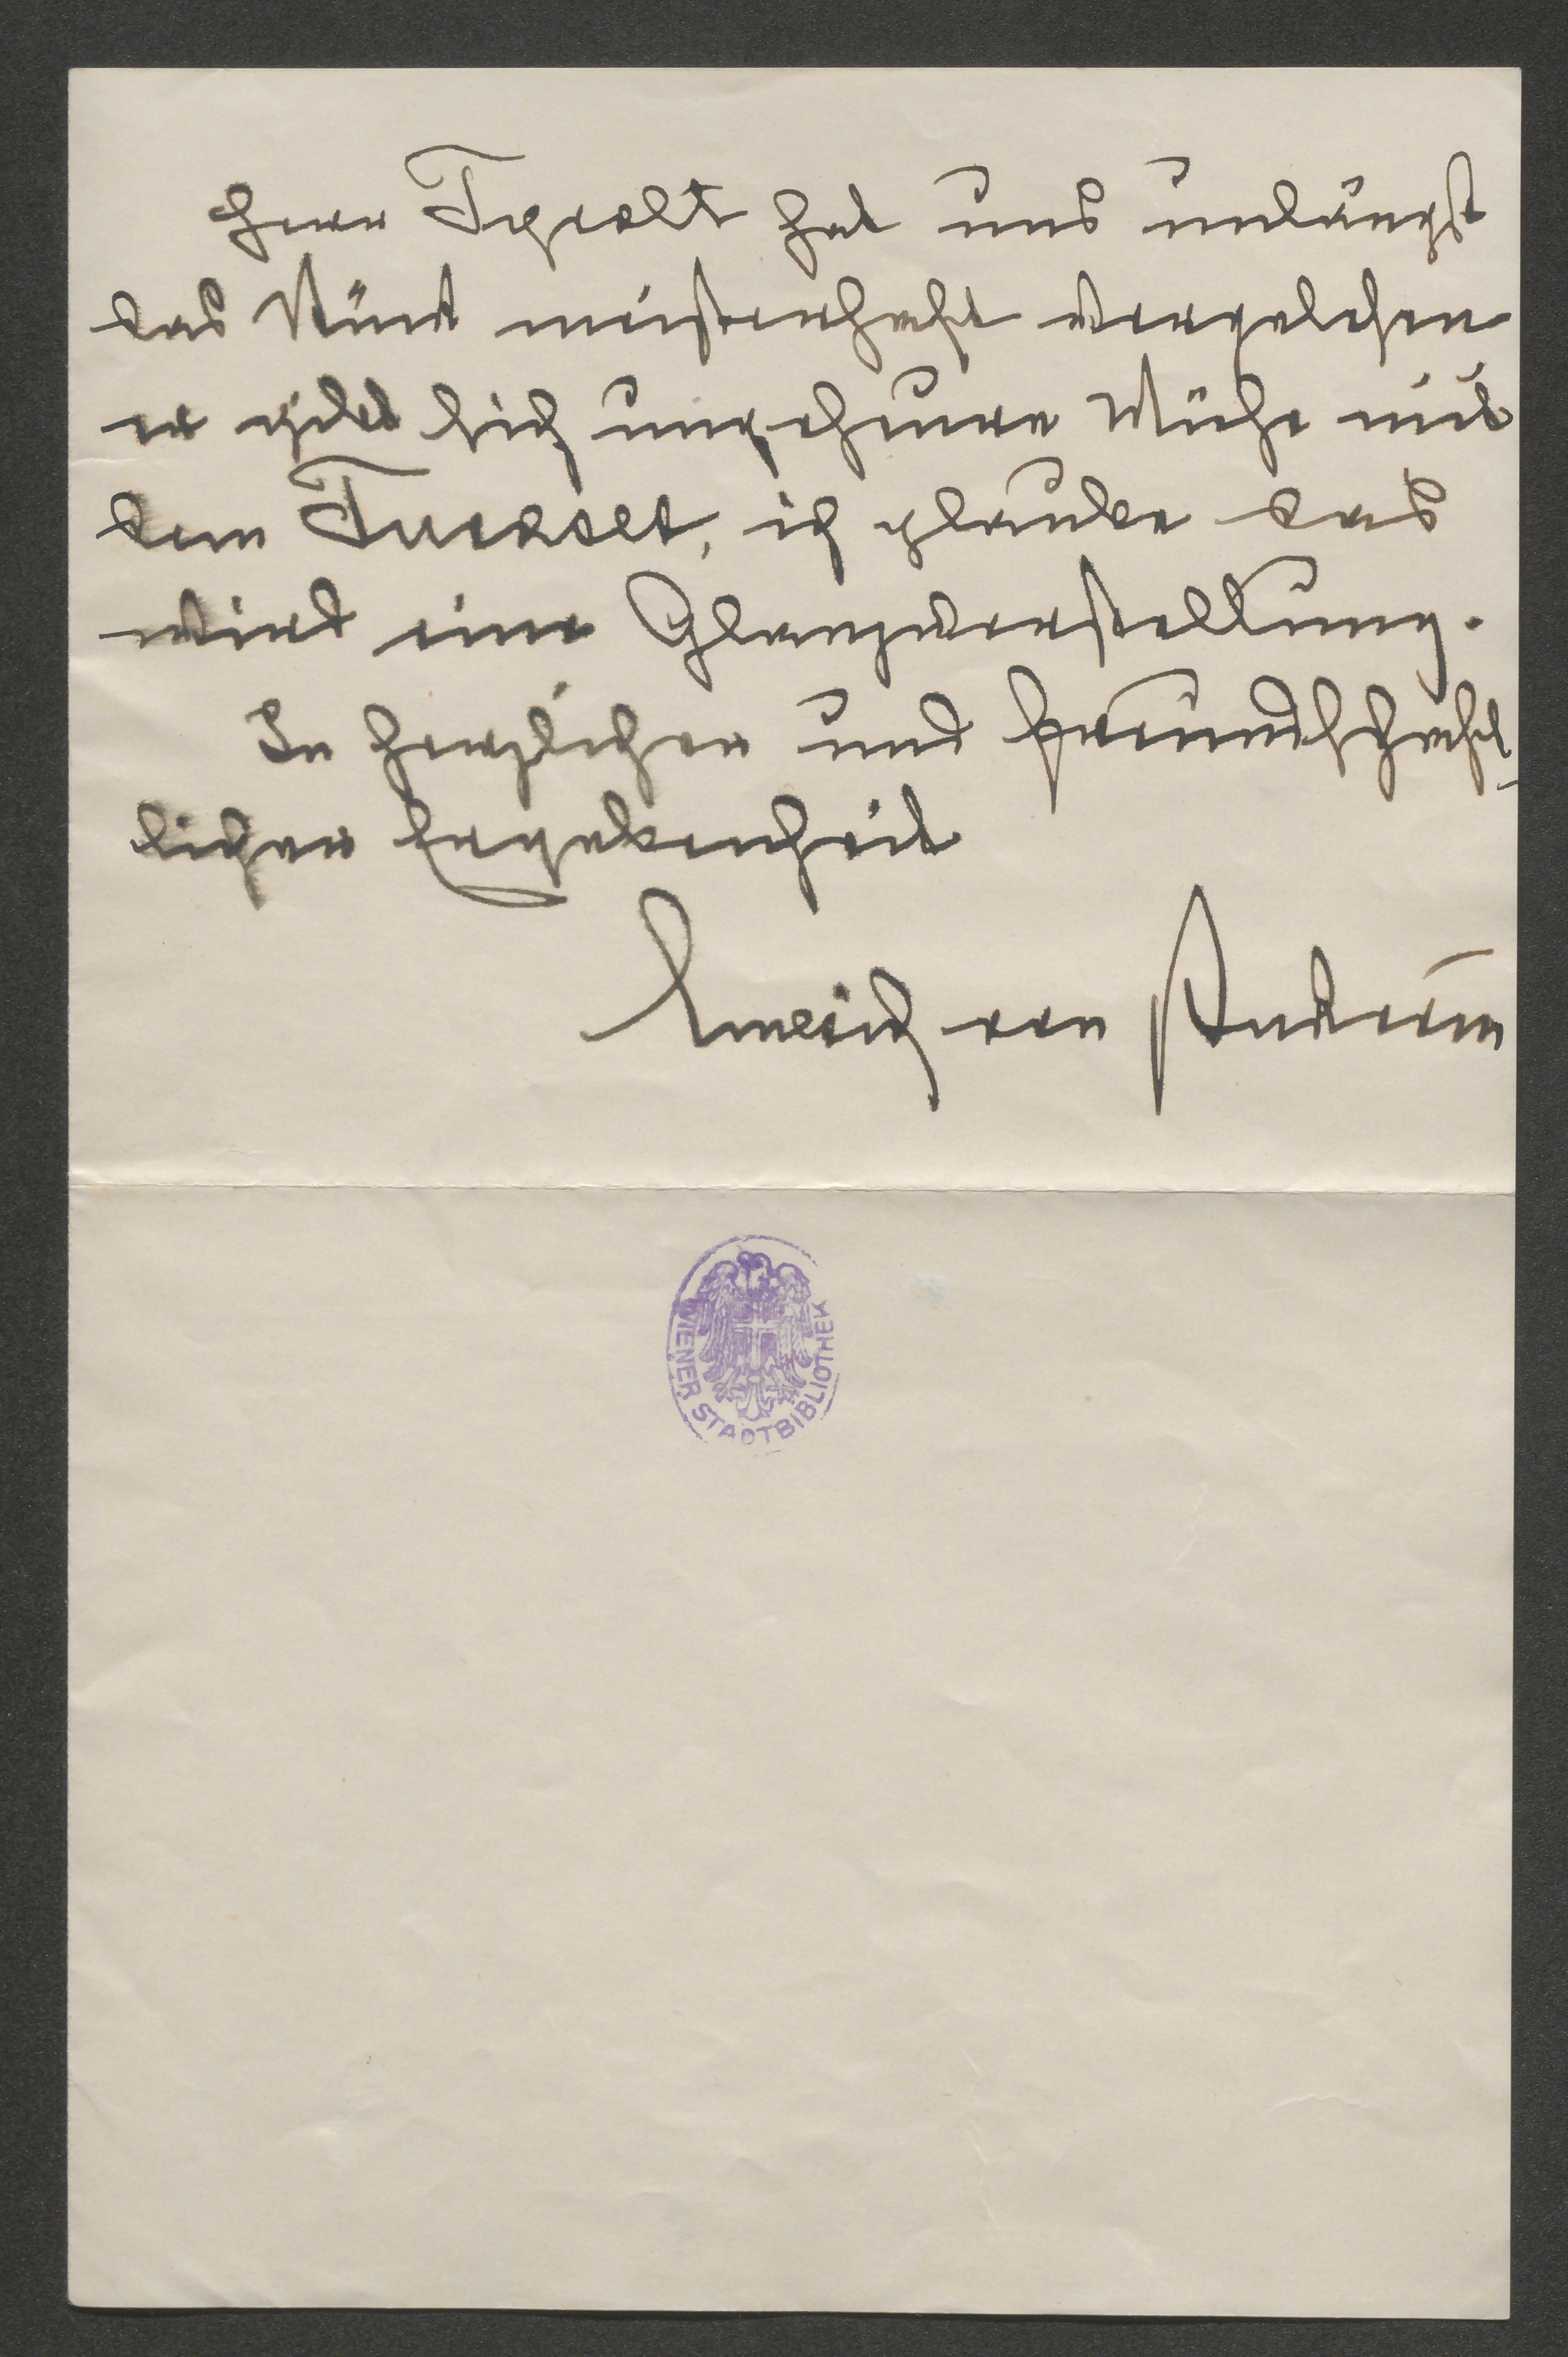 Herr Tyrolt hat uns unlängst
das Stück meisterhaft vorgelesen
er gibt sich ungeheure Mühe mit
dem ich glaube das
wird eine Glanzvorstellung.
In herzlicher und freundschaft-
licher Ergebenheit
Emerich von
WIENER STADTBIBLIOTHEK